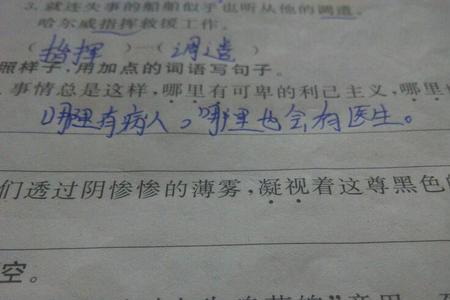 3. 就连失事的船船似乎也听从他的调遣。
哈尔威指挥救援工作。
(指挥)—(调遣)
照样子,用加点的词语写句子。
事情总是这样,哪里有可卑的利己主义,哪里
哪里有病人,哪里也会有医生。
们透过阴惨惨的薄雾,凝视着这尊黑色
空。